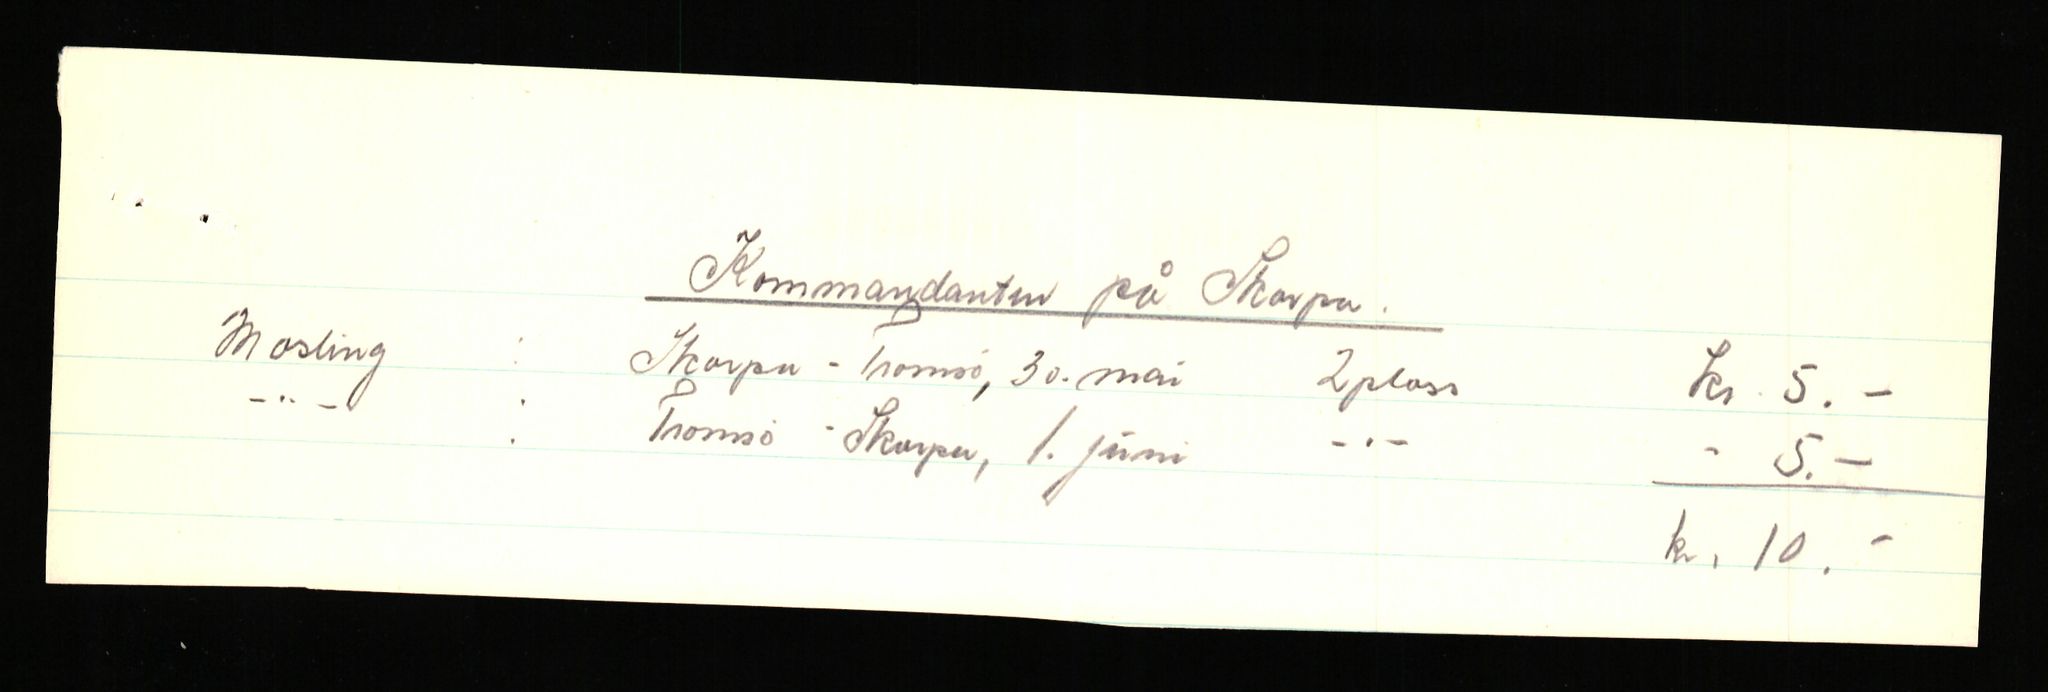 Kommandanten på Skorpa.
Mosling : Skorpa - Tromsö, 30. mai 2 plass kr. 5.-
-"- : Tromsö - Skorpa, 1. juni -"- " 5.-
kr. 10.-